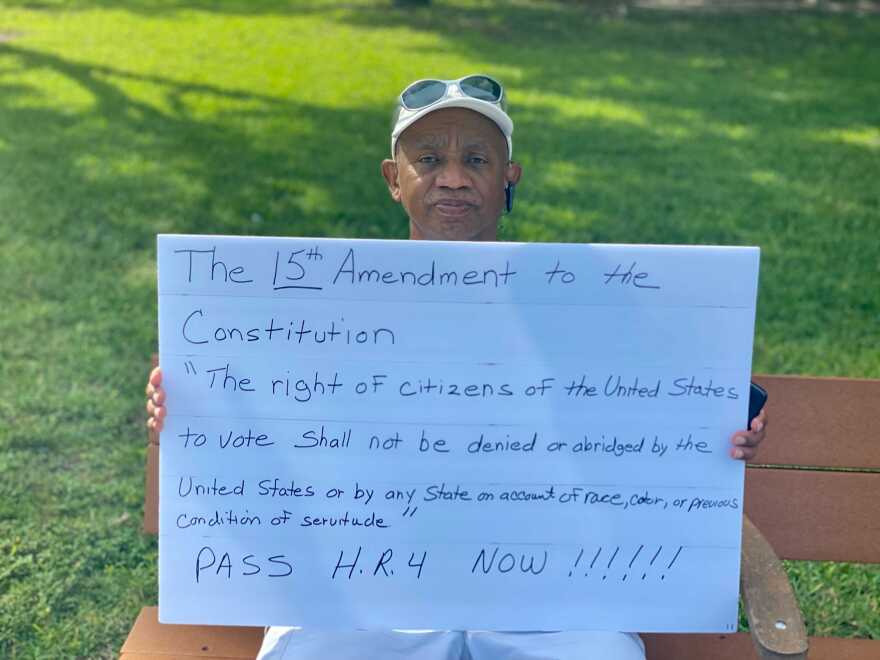 The 15th Amendment to the
Constitution
"The right of citizens of the United States
to vote shall not be denied or abridged by the
United States or by any State on account of race, color, or previous
condition of servitude"
PASS H.R. 4 NOW !!!!!!